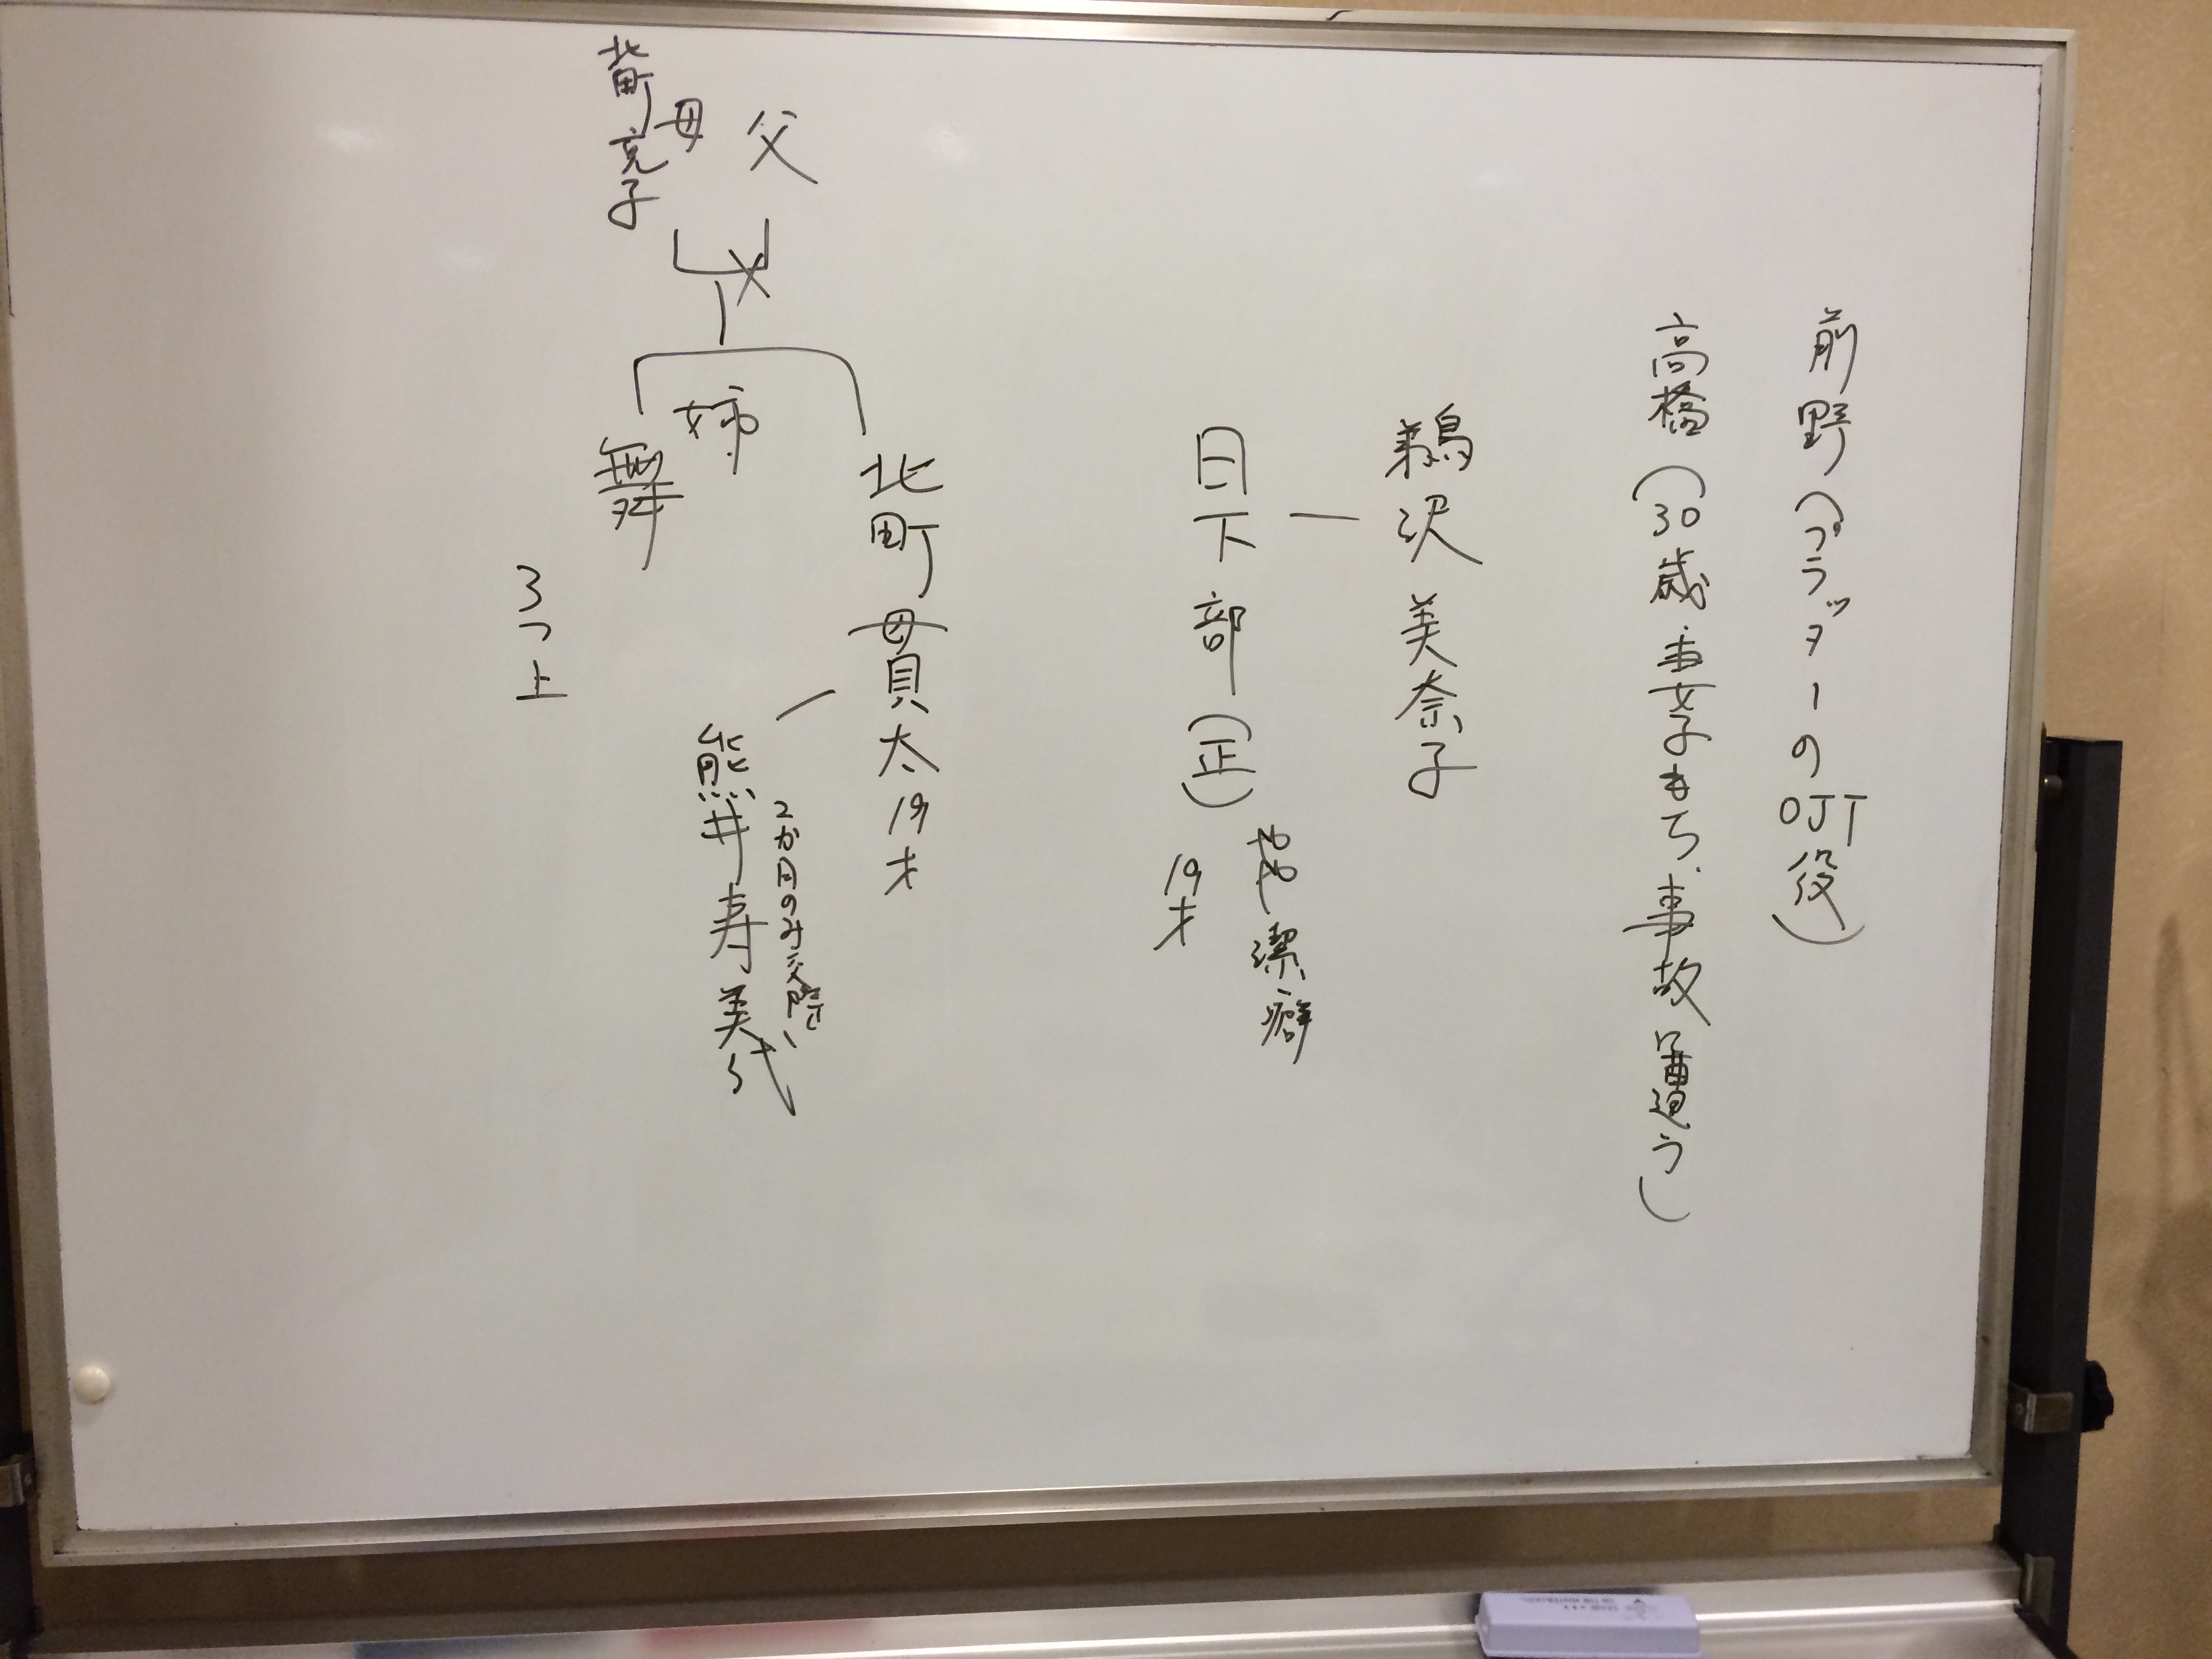 前野(プラッターのOJT役)
高橋(30歳 妻子もち、事故遭う)
鵜沢美奈子
日下部(正)
潔癖
19才
父
母
北町亮子
北町貫太 19才
姉
舞
3つ上
2か月のみ交際
熊井寿美代